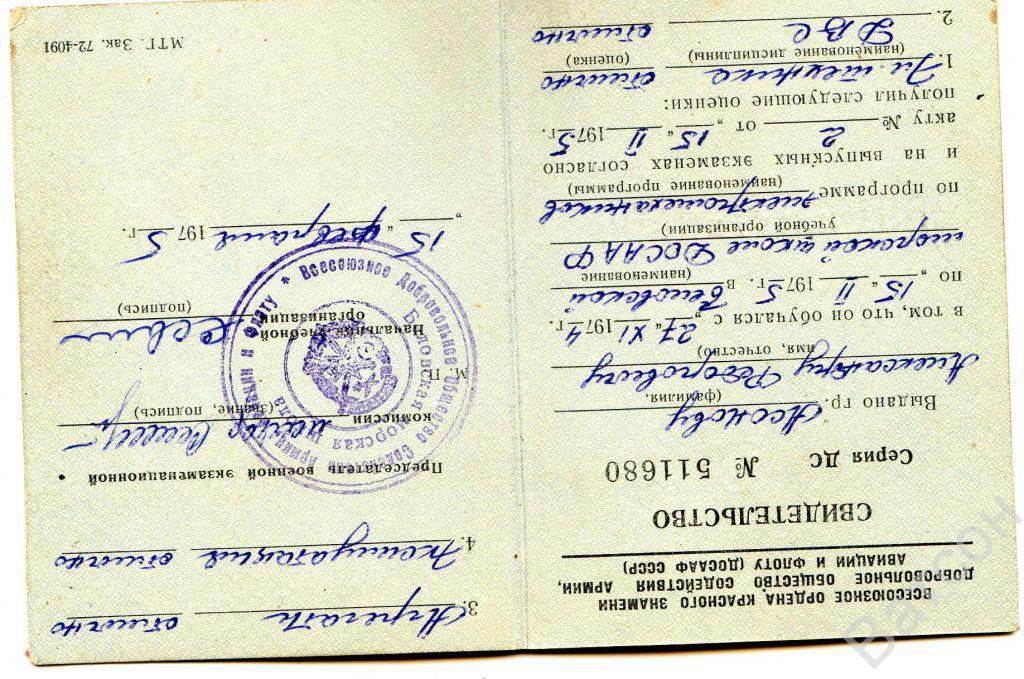 ВСЕСОЮЗНОЕ ОРДЕНА КРАСНОГО ЗНАМЕНИ
ДОБРОВОЛЬНОЕ ОБЩЕСТВО СОДЕЙСТВИЯ АРМИИ,
АВИАЦИИ И ФЛОТУ (ДОСААФ СССР)
СВИДЕТЕЛЬСТВО
Серия ДС № 511680
Выдано гр.
(фамилия,
Александру Федоровичу
имя, отчество)
в том, что он обучался с „27“ XI 1974 г.
по „15“ II 1975 г. в Беловской
(наименование
морской школе ДОСААФ
учебной организации)
по программе электромехаников
(наименование программы)
и на выпускных экзаменах согласно
акту № 2 от „15“ II 1975 г.
получил следующие оценки:
1. отлично
(наименование дисциплины) (оценка)
2. ДВС отлично
3. Агрегаты отлично
4. отлично
Председатель военной экзаменационной
комиссии майор
(звание, подпись)
М. П.
Начальник учебной
организации
(подпись)
„15“ февраля 1975 г.
Всесоюзное Добровольное Общество Содействия Армии, Авиации и Флоту *
Беловская Морская Школа
МТГ. Зак. 72-4091
Вансон